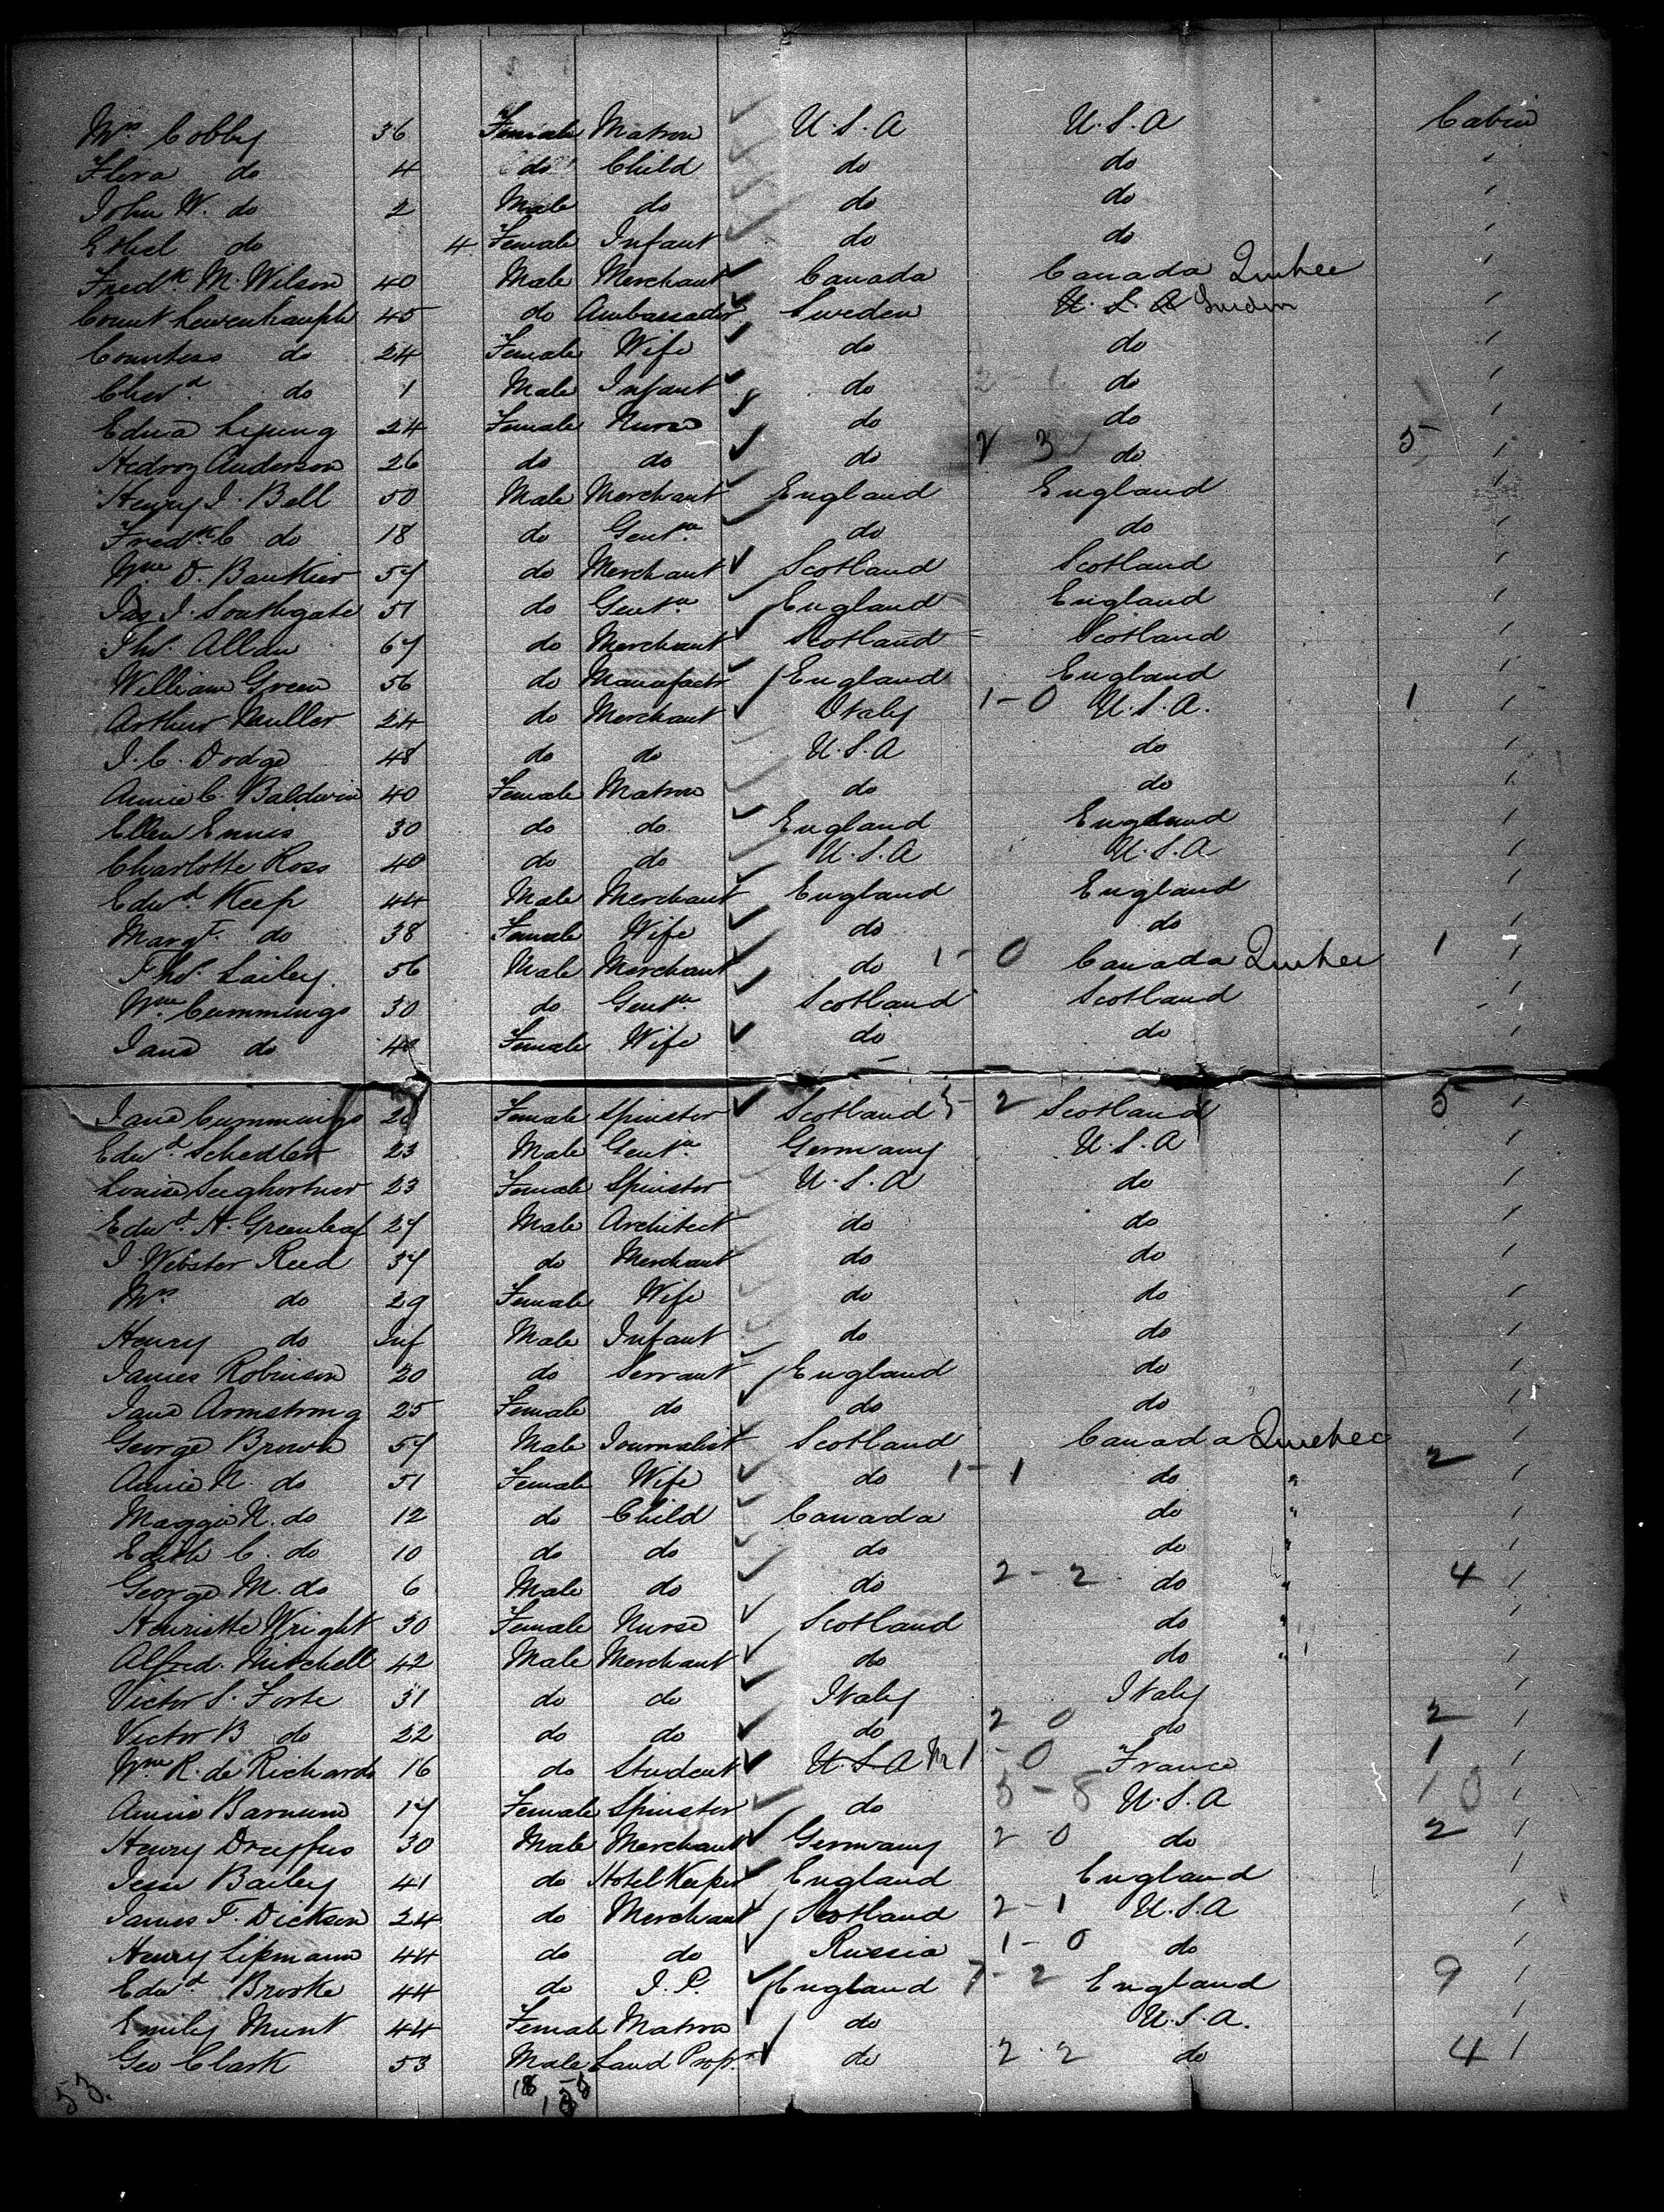 Mrs Cobby 36 Female Matron U.S.A U.S.A Cabin
Flora do 4 do Child do do
John W. do 2 Male do do do
Ethel do 4 Female Infant do do
Fredk M. Wilson 40 Male Merchant Canada Canada Quebec
Count Lewenhaupt 45 do Ambassador Sweden U.S.A Sweden
Countess do 24 Female Wife do do
do 1 Male Infant do 2-1 do
Edna 24 Female Nurse do do
Anderson 26 do do do 2 3 do 5
Henry J. Bell 50 Male Merchant England England
Fredk C do 18 do Gentn do do
Wm D. Bankier 57 do Merchant Scotland Scotland
Jas J. Southgate 51 do Gentn England England
Thos. Allan 67 do Merchant Scotland Scotland
William Green 56 do Manafactr England England
Arthur Muller 24 do Merchant Italy 1-0 U.S.A. 1
J. C. Dodge 48 do do U.S.A do
Annie C. Baldwin 40 Female Matron do do
Ellen Ennis 30 do do England England
Charlotte Ross 40 do do U.S.A U.S.A
Edwd Keep 44 Male Merchant England England
Margt. do 38 Female Wife do do
Thos. Lailey. 56 Male Merchant do 1-0 Canada Quebec 1
Wm Cummings 30 do Gentn Scotland Scotland
Jane do Female Wife do do
Jane Cummings Female Spinster Scotland 5-2 Scotland 5
Edwd. Schedler 23 Male Gentn Germany U.S.A
Louise 23 Female Spinster U.S.A do
Edwd. H. Greenleaf 27 Male Architect do do
J. Webster Reed 37 do Merchant do do
Mrs do 29 Female Wife do do
Henry do Inf Male Infant do do
James Robinson 20 do Servant England do
Jane Armstrong 25 Female do do do
George Brown 57 Male Journalist Scotland Canada Quebec
Annie N. do 51 Female Wife do 1-1 do " 2
Maggie N. do 12 do Child Canada do "
Edith C. do 10 do do do do "
George M. do 6 Male do do 2-2 do " 4
Henriette Wright 30 Female Nurse Scotland do "
Alfred. Mitchell 42 Male Merchant do do "
Victor S. Forte 31 do do Italy Italy
Victor B do 22 do do do 2 0 do 2
Wm R. de Richards 16 do Student U.S.A Fr 1-0 France 1
Annie Barnum 17 Female Spinster do 5-8 U.S.A
Henry Dreyfus 30 Male Merchant Germany 2 0 do 2
Jesse Bailey 41 do Hotel Keeper England England
James F. Dickson 24 do Merchant Scotland 2-1 U.S.A
Henry Lipmann 44 do do Russia 1-0 do
Edwd. Brooke 44 do J.P. England 7-2 England 9
Emily Munt 44 Female Matron do U.S.A.
Geo Clark 53 Male Land Prop. do 2.2 do 4
53.